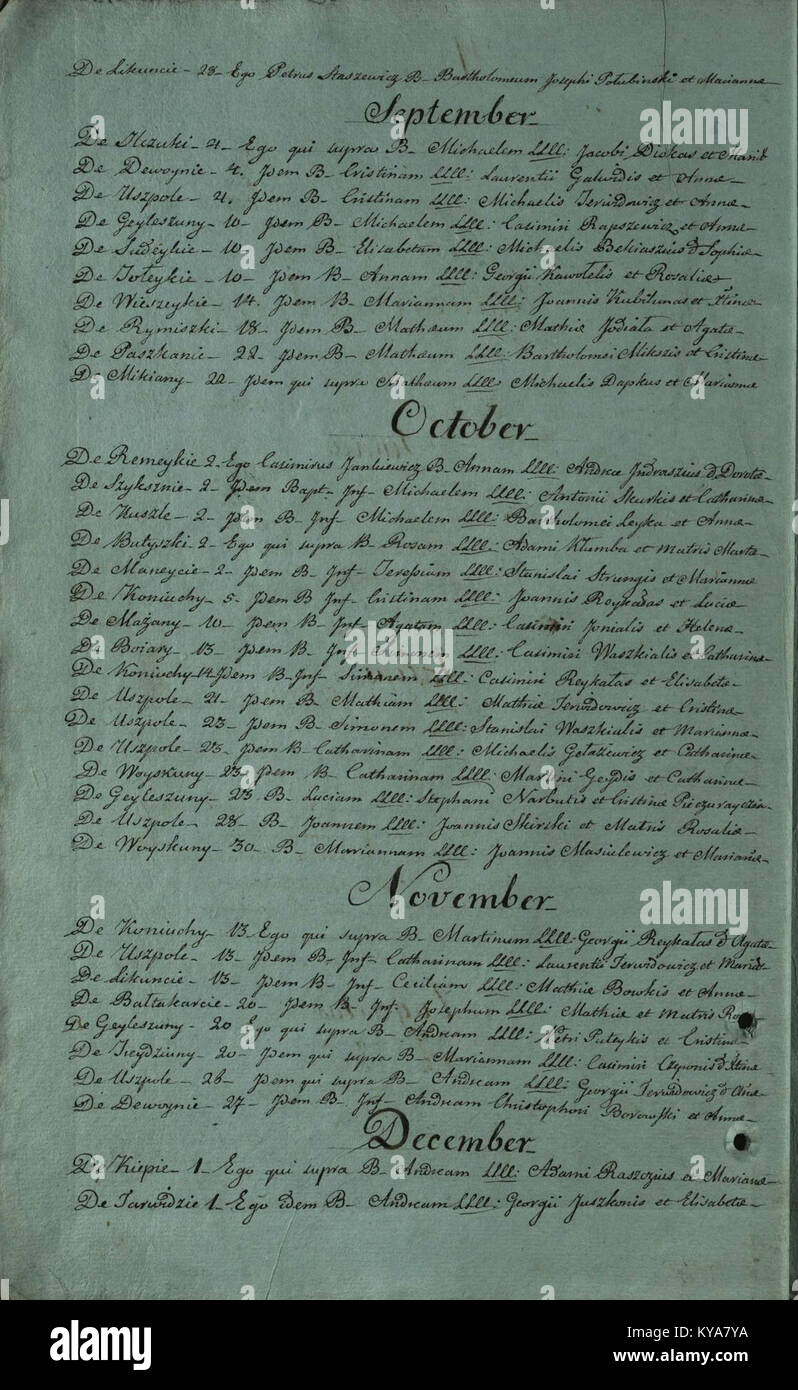 De Likuncie - 28 - Ego Petrus Staszewicz B- Bartholomeum Josephi Połubinski et Marianna
September
De Ilczuki - 4 - Ego qui supra B- Michaelem LLLL: Jacobi et
De Dewoynie - 4. Jdem B- Cristinam LLLL: Laurentii Galwidis et Annæ
De Uszpole - 4. Jdem B- Cristinam LLLL: Michaelis Terwidowicz et Annæ
De Geyleszuny - 10 - Jdem B- Michaelem LLLL: Casimiri Rapszewicz et Annæ
De Sudeykie - 10 Jdem B- Elisabetam LLLL: Michaelis Bekiaszius et Sophiæ
De Toteykie - 10 - Jdem B- Annam LLLL: Georgii Kawolelis et Rosaliæ
De Wieszeykie - 14. Jdem B- Mariannam LLLL: Joannis Kubilunas et Xtinæ
De Rymiszki - 18 - Jdem B- Mathæum LLLL: Mathiæ Jodiala et Agatæ
De Paszkanie - 22 - Jdem B- Mathæum LLLL: Bartholomei Mikszis et Cristinæ
De Mikiany - 22 - Jdem qui supra Mathæum LLLL Michaelis Dapkus et Mariannæ
October
De Remeykie 2 - Ego Casimirus Jankiewicz B- Annam LLLL: Andreæ Indraszius et Dorotæ
De Szyksznie - 2 - Jdem Bapt- Jnf- Michaelem LLLL: Antonii Skurkis et Catharinæ
De Kuszle - 2 - Jdem B- Jnf- Michaelem LLLL: Bartholomei Leyka et Annæ
De Butyszki 2 - Ego qui supra B- Rosam LLLL: Adami Klumba et Matris Martæ
De Maneycie - 2 - Jdem B- Jnf- Teressiam LLLL: Stanislai Strungis et Mariannæ
De Koniuchy - 5 - Jdem B Jnf- Cristinam LLLL: Joannis Reykałas et Luciæ
De Mażany - 10 - Jdem B- Jnf- Agatam LLLL: Casimiri Jonialis et Helenæ
De Boiary - 13 - Jdem B- Jnf Simonem LLLL: Casimiri Waszkialis et Catharinæ
De Koniuchy - 14 - Jdem B- Jnf- Simonem LLLL: Casimiri Reykałas et Elisabetæ
De Uszpole - 21 - Jdem B- Mathiam LLLL: Mathiæ Terwidowicz et Cristinæ
De Uszpole - 23 - Jdem B- Simonem LLLL: Stanislai Waszkialis et Mariannæ
De Uszpole - 23 - Jdem B- Catharinam LLLL: Michaelis Gelażewicz et Catharinæ
De Woyskuny - 23 - Jdem B- Catharinam LLLL: Martini Geydis et Catharinæ
De Geyleszuny - 23 B- Luciam LLLL: Stephani Narbutis et Cristinæ
De Uszpole - 28 - B- Joannem LLLL: Joannis Skirski et Matris Rosaliæ
De Woyskuny - 30 - B- Mariannam LLLL: Joannis Masiulewicz et Marianæ
November
De Koniuchy - 13 - Ego qui supra B- Martinum LLLL- Georgii Reykałas et Agatæ
De Uszpole - 13 - Jdem B- Jnf- Catharinam LLLL: Laurentii Terwidowicz et
De Likuncie - 13 - Jdem B- Jnf- Ceciliam LLLL: Mathiæ Bowkis et Annæ
De Bałtakarcie - 20 - Jdem B- Jnf- Josephum LLLL: Mathiæ et Matris
De Geyleszuny - 20 Ego qui supra B- Andream LLLL: Petri Puteykis et Cristinæ
De Treydziuny - 20 - Jdem qui supra B- Mariannam LLLL: Casimiri Czyponis et Xtinæ
De Uszpole - 26 - Jdem qui supra B- Andream LLLL: Georgii Terwidowicz et
De Dewoynie - 27 - Jdem B- Jnf- Andream Christophori Borowski et Annæ
December
De Kiepie - 1 - Ego qui supra B- Andream LLLL: Adami Raszozius et Marianæ
De Tarwidzie 1 - Ego idem B- Andream LLLL: Georgii Juszkonis et Elisabetæ
alamy
alamy
Image ID: KYA7YA
www.alamy.com